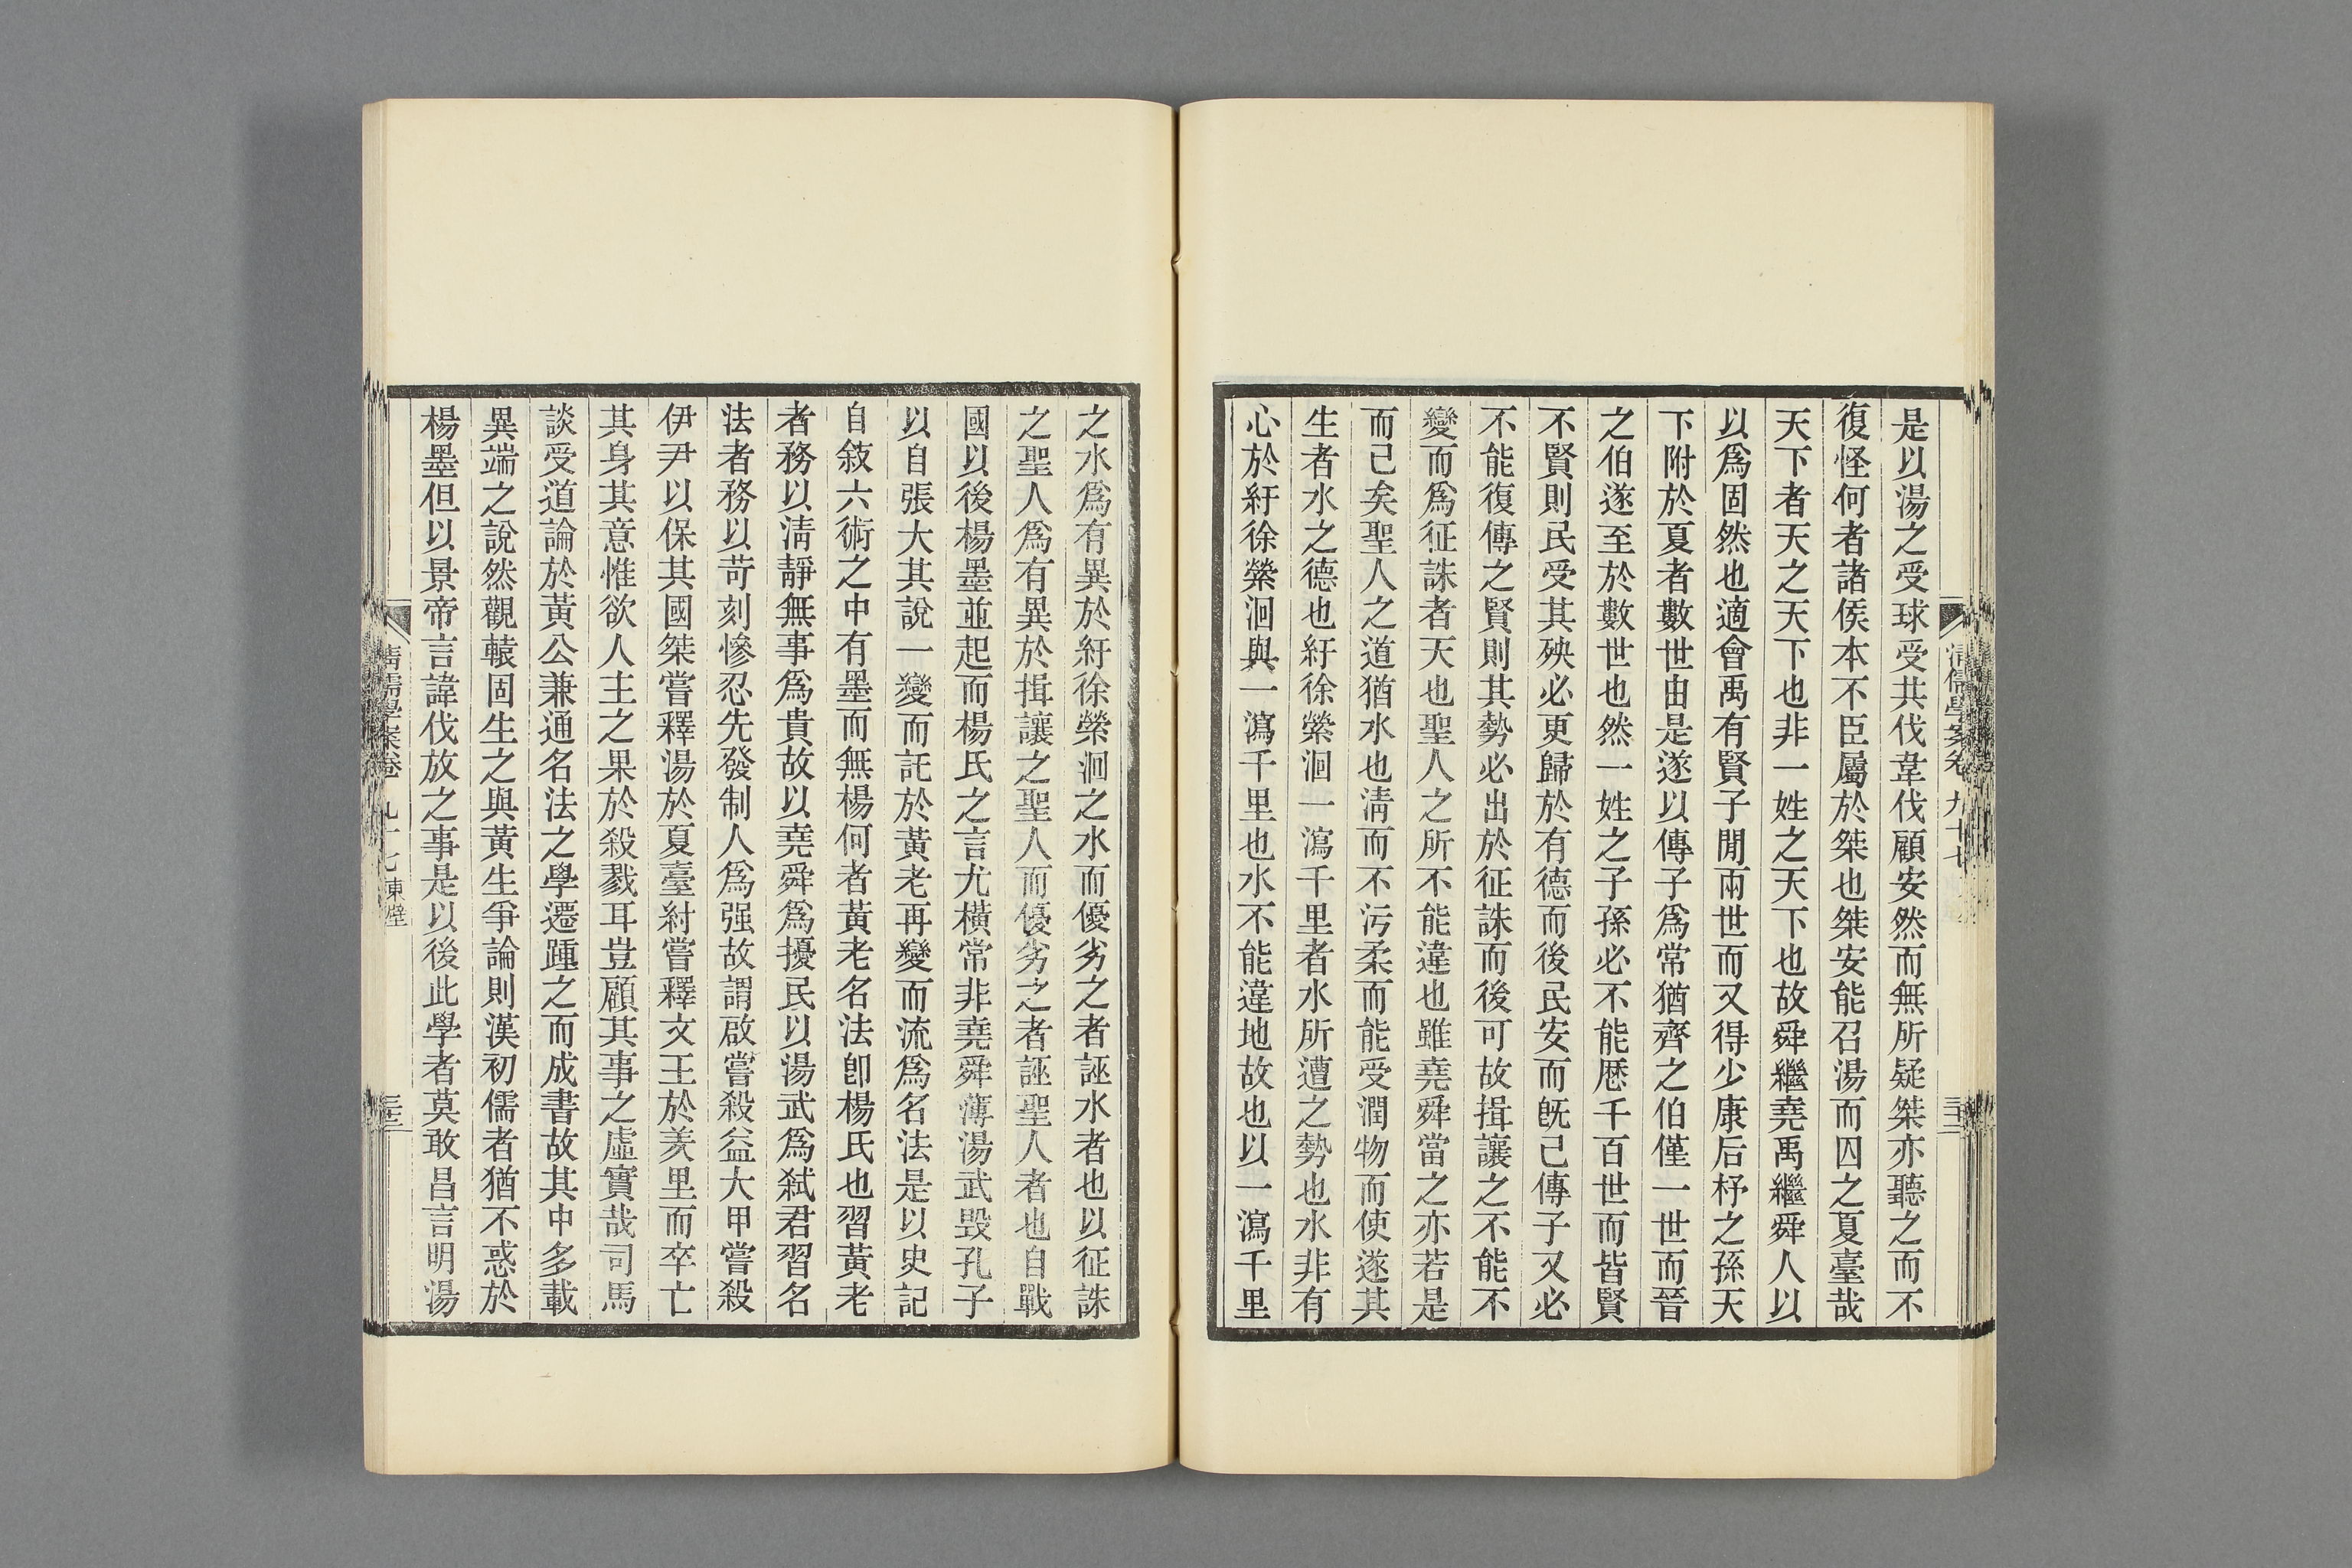 是以湯之受球受共伐韋伐顧安然而無所疑桀亦聽之而不
復怪何者諸侯本不臣屬於桀也桀安能召湯而囚之夏臺哉
天下者天之天下也非一姓之天下也故舜繼堯禹繼舜人以
以爲固然也適會禹有賢子閒兩世而又得少康后杼之孫天
下附於夏者數世由是遂以傳子爲常猶齊之伯僅一世而晉
之伯遂至於數世也然一姓之子孫必不能歷千百世而皆賢
不賢則民受其殃必更歸於有德而後民安而旣已傳子又必
不能復傳之賢則其勢必出於征誅而後可故揖讓之不能不
變而爲征誅者天也聖人之所不能違也雖堯舜當之亦若是
而已矣聖人之道猶水也淸而不污柔而能受潤物而使遂其
生者水之德也紆徐縈洄一瀉千里者水所遭之勢也水非有
心於紆徐縈洄與一瀉千里也水不能違地故也以一瀉千里
之水爲有異於紆徐縈洄之水而優劣之者誣水者也以征誅
之聖人爲有異於揖讓之聖人而優劣之者誣聖人者也自戰
國以後楊墨並起而楊氏之言尤橫常非堯舜薄湯武毀孔子
以自張大其說一變而託於黃老再變而流爲名法是以史記
自敍六術之中有墨而無楊何者黃老名法卽楊氏也習黃老
者務以淸靜無事爲貴故以堯舜爲擾民以湯武爲弑君習名
法者務以苛刻慘忍先發制人爲强故謂啟嘗殺益大甲嘗殺
伊尹以保其國桀嘗釋湯於夏臺紂嘗釋文王於羑里而卒亡
其身其意惟欲人主之果於殺戮耳豈顧其事之虛實哉司馬
談受道論於黃公兼通名法之學遷踵之而成書故其中多載
異端之說然觀轅固生之與黃生爭論則漢初儒者猶不惑於
楊墨但以景帝言諱伐放之事是以後此學者莫敢昌言明湯
清儒學案卷九十七 東壁